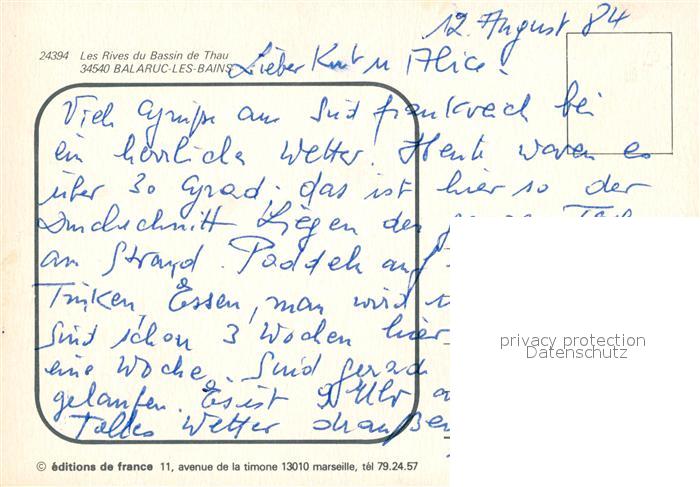 12. August 84
24394 Les Rives du Bassin de Thau
34540 BALARUC-LES-BAINS
Lieber Kurt u Alice.
Viele Grüße aus Südfrankreich bei
ein herrliches Wetter! Heute waren es
über 30 Grad. das ist hier so der
Durchschnitt Liegen den
am Strand. Paddeln auf
Trinken, Essen, man wird
Sind schon 3 Wochen hier
eine Woche. Sind gerade
gelaufen. Es ist Uhr
Tolles Wetter draußen
privacy protection
Datenschutz
© éditions de france 11, avenue de la timone 13010 marseille, tél 79.24.57